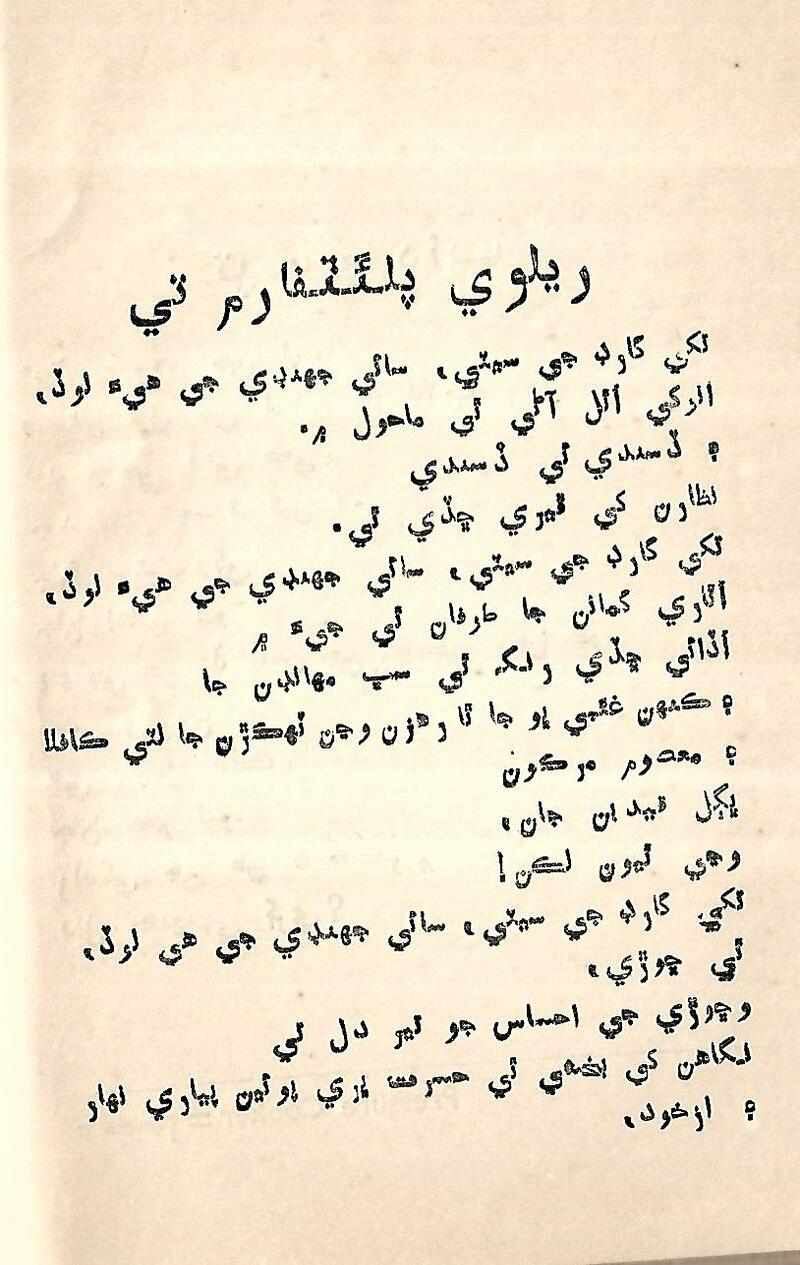 ريلوي پلئٽفارم تي
تکي گارڊ جي سيٽي، سائي جهنڊي جي هيءَ لوڏ،
الڙکي اٿل آڻي ٿي ماحول ۾.
۽ ڏسندي ئي ڏسندي
نظارن کي ڦيري ڇڏي ٿي.
تکي گارڊ جي سيٽي، سائي جهنڊي جي هيءَ لوڏ،
اٿاري گمانن جا طوفان ٿي جيءَ ۾
اڏائي ڇڏي رنگ ٿي سڀ مهانڊن جا
۽ ڪنهن غيبي ڀو جا ٿا رهزن وڃن ٽهڪڙن جا لٽي ڪافلا
۽ معصوم مرڪون
ڀڳل قيدين جان،
وڃي ٿيون لڪن!
تکي گارڊ جي سيٽي، سائي جهنڊي جي هي لوڏ،
ٿي ڇوڙي،
وڇوڙي جي احساس جو تير دل تي
نگاهن کي بخشي ٿي حسرت ڀري پوئين پياري نهار
۽ ازخود،